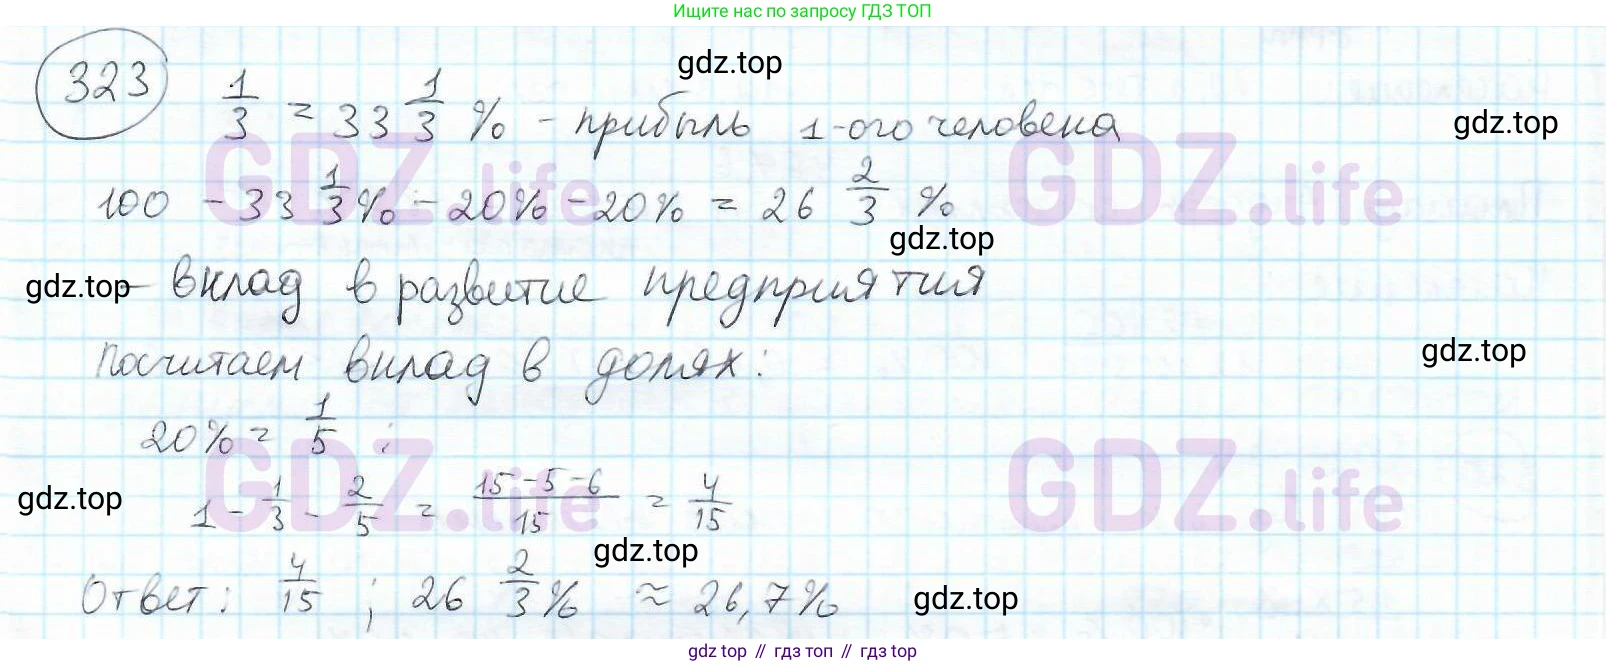 Ищите нас по запросу ГДЗ ТОП
gdz.top
323 1/3 = 33 1/3 % - прибыль 1-ого человека
gdz.top
GDZ.life GDZ.life
100 - 33 1/3 % - 20% - 20% = 26 2/3 %
gdz.top
gdz.top - вклад в развитие предприятия
Посчитаем вклад в долях:
gdz.top
20% = 1/5 ;
GDZ.life GDZ.life
gdz.top 1 - 1/3 - 2/5 = (15 - 5 - 6)/15 = 4/15
gdz.top
Ответ: 4/15 ; 26 2/3 % ≈ 26,7%
gdz.top
gdz top // гдз топ // gdz top